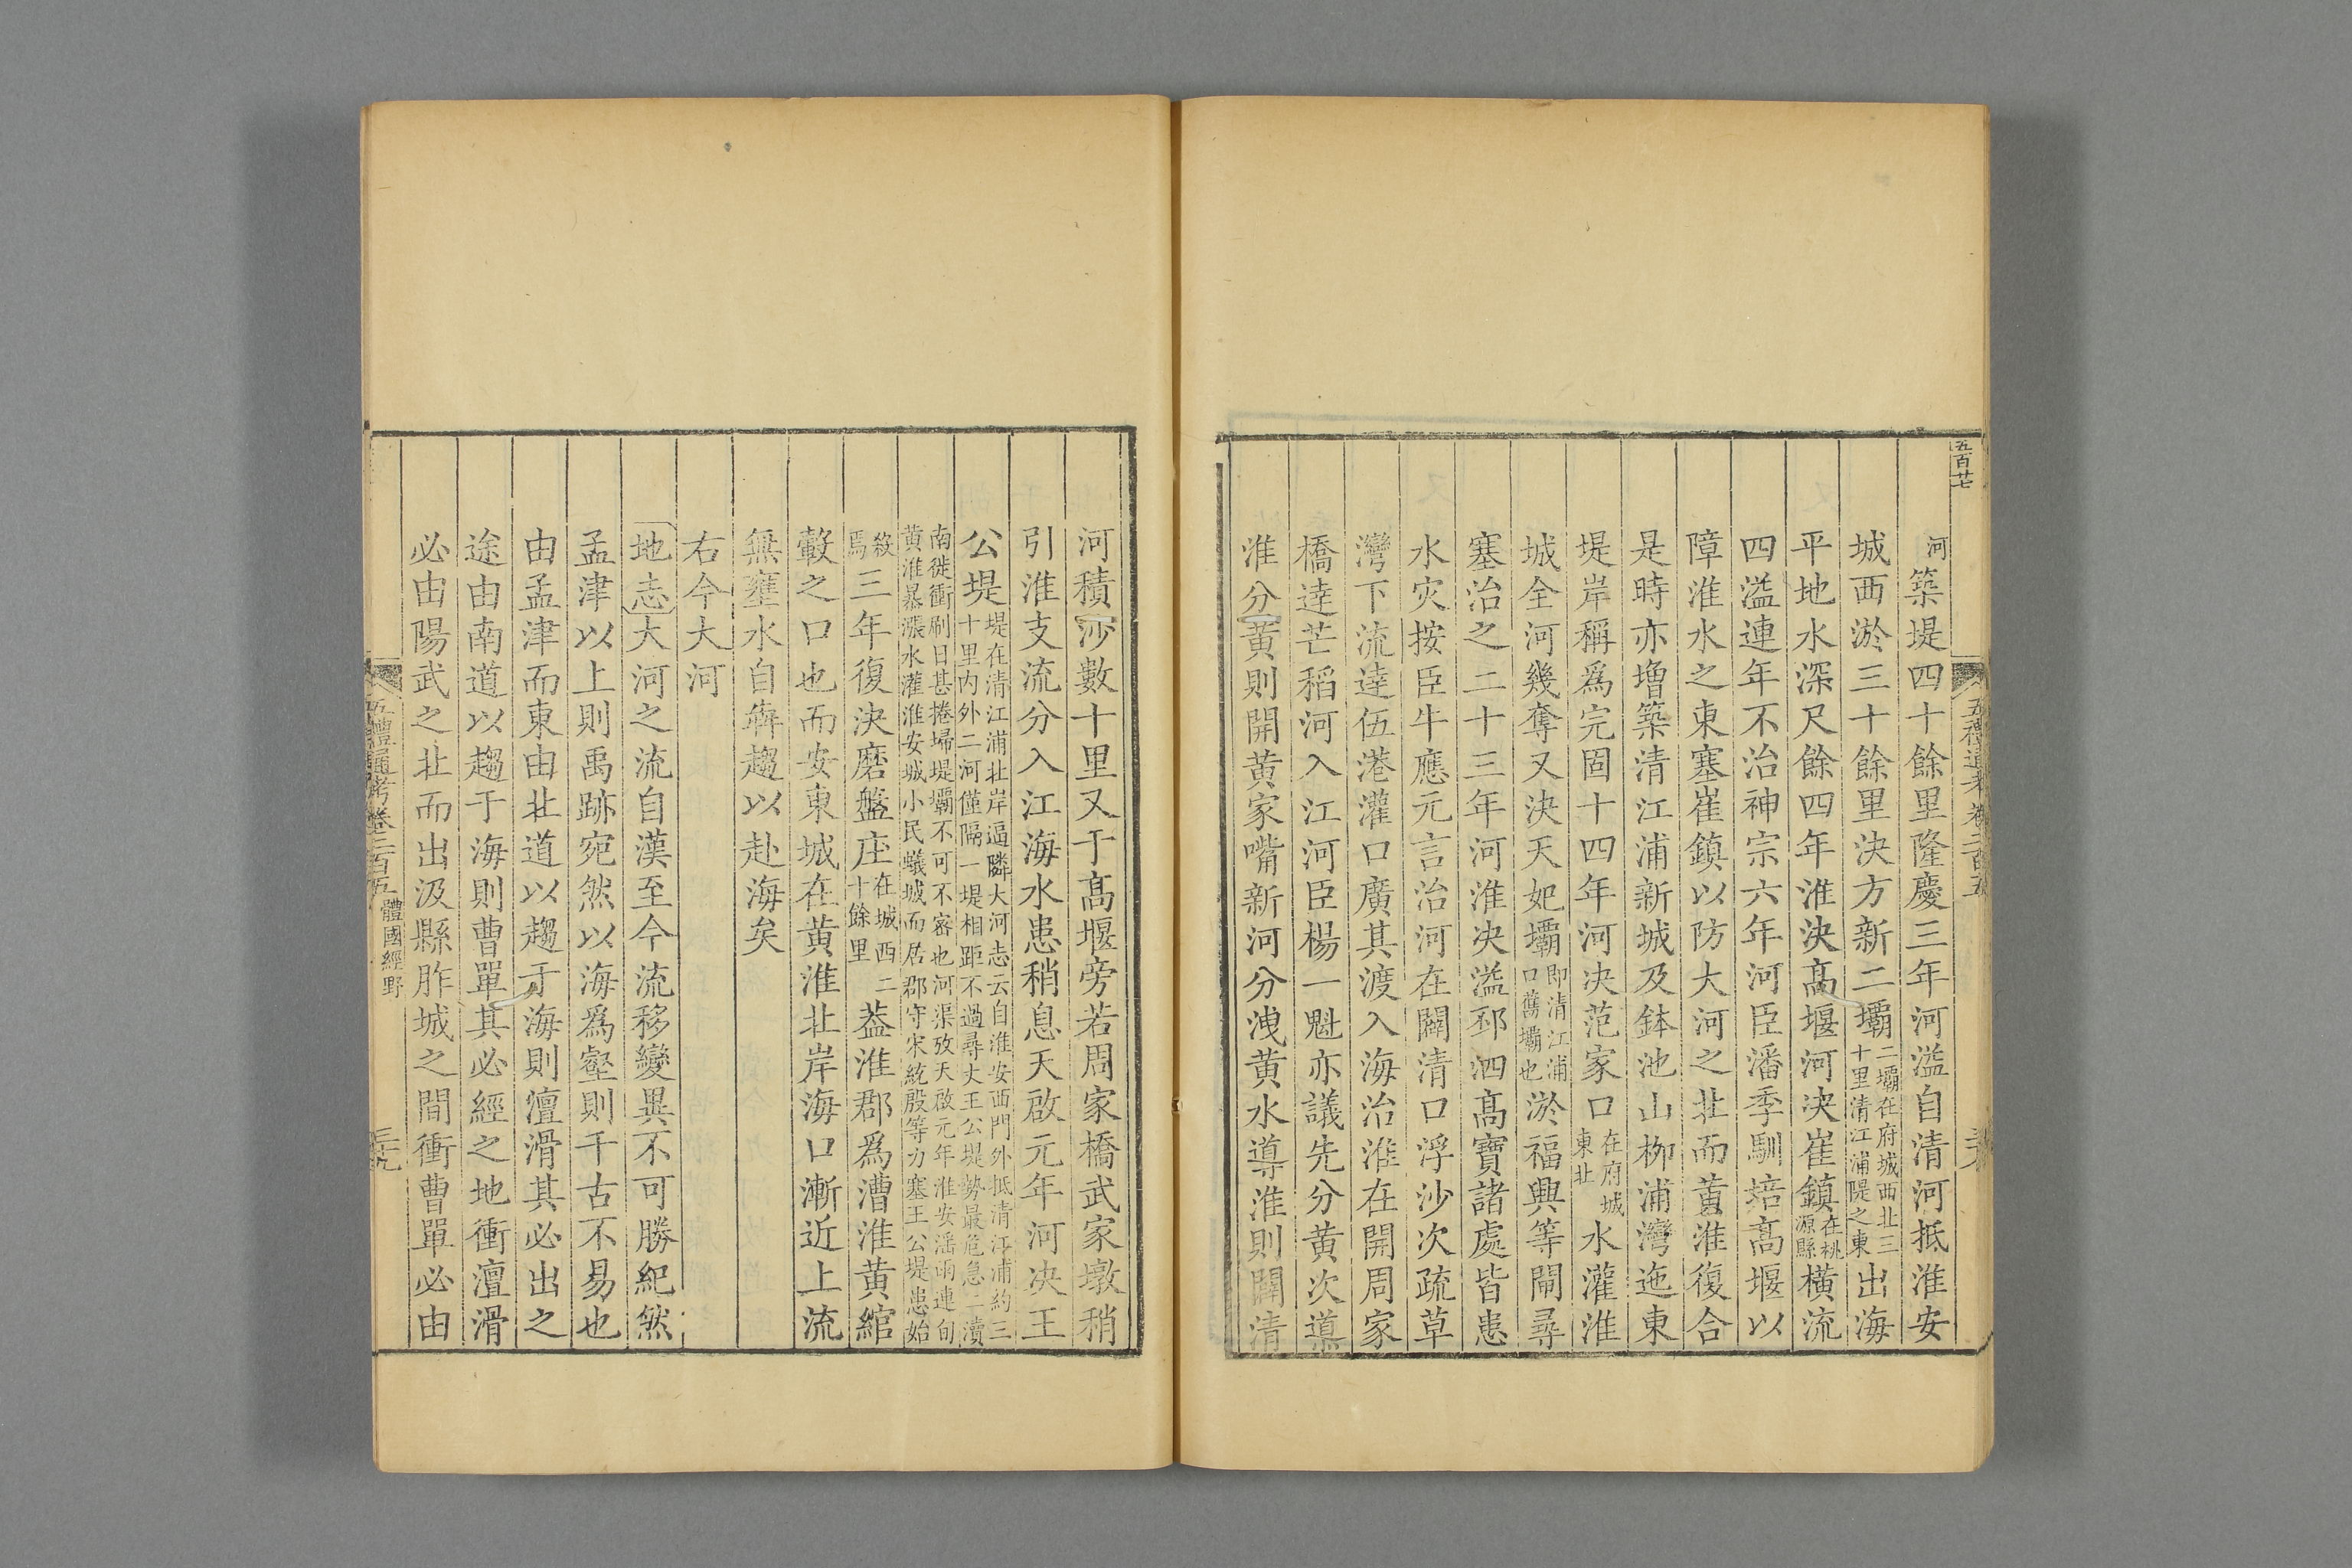 五百廿七
五禮通考卷二百五
河築堤四十餘里隆慶三年河溢自清河抵淮安
城西淤三十餘里決方新二壩二壩在府城西北三十里清江浦隄之東出海
平地水深尺餘四年淮決髙堰河决崔鎮在桃源縣橫流
四溢連年不治神宗六年河臣潘季馴培高堰以
障淮水之東塞崔鎮以防大河之北而黃淮復合
是時亦增築清江浦新城及鉢池山栁浦灣迤東
堤岸稱爲完固十四年河决范家口在府城東北水灌淮
城全河幾奪又決天妃壩即清江浦口舊壩也淤福興等閘尋
塞治之二十三年河淮决溢邳泗髙寶諸處皆患
水灾按臣牛應元言治河在闢清口浮沙次疏草
灣下流達伍港灌口廣其渡入海治淮在開周家
橋達芒稻河入江河臣楊一魁亦議先分黄次導
淮分黄則開黄家嘴新河分洩黄水導淮則闢清
河積沙數十里又于髙堰旁若周家橋武家墩稍
引淮支流分入江海水患稍息天啟元年河决王
公堤堤在清江浦北岸逼隣大河志云自淮安西門外抵清江浦約三十里内外二河僅隔一堤相距不過尋丈王公堤勢最危急二瀆
南徙衝刷日甚捲埽堤壩不可不密也河渠攷天啟元年淮安滛雨連旬黄淮暴漲水灌淮安城小民蟻城而居郡守宋統殷等力塞王公堤患始
殺焉三年復決磨盤庄在城西二十餘里葢淮郡爲漕淮黄綰
轂之口也而安東城在黄淮北岸海口漸近上流
無壅水自犇趨以赴海矣
右今大河
地志大河之流自漢至今流移變異不可勝紀然
孟津以上則禹跡宛然以海爲壑則千古不易也
由孟津而東由北道以趨于海則澶滑其必出之
途由南道以趨于海則曹單其必經之地衝澶滑
必由陽武之北而出汲縣胙城之間衝曹單必由
五禮通考卷二百五
體國經野
三十九